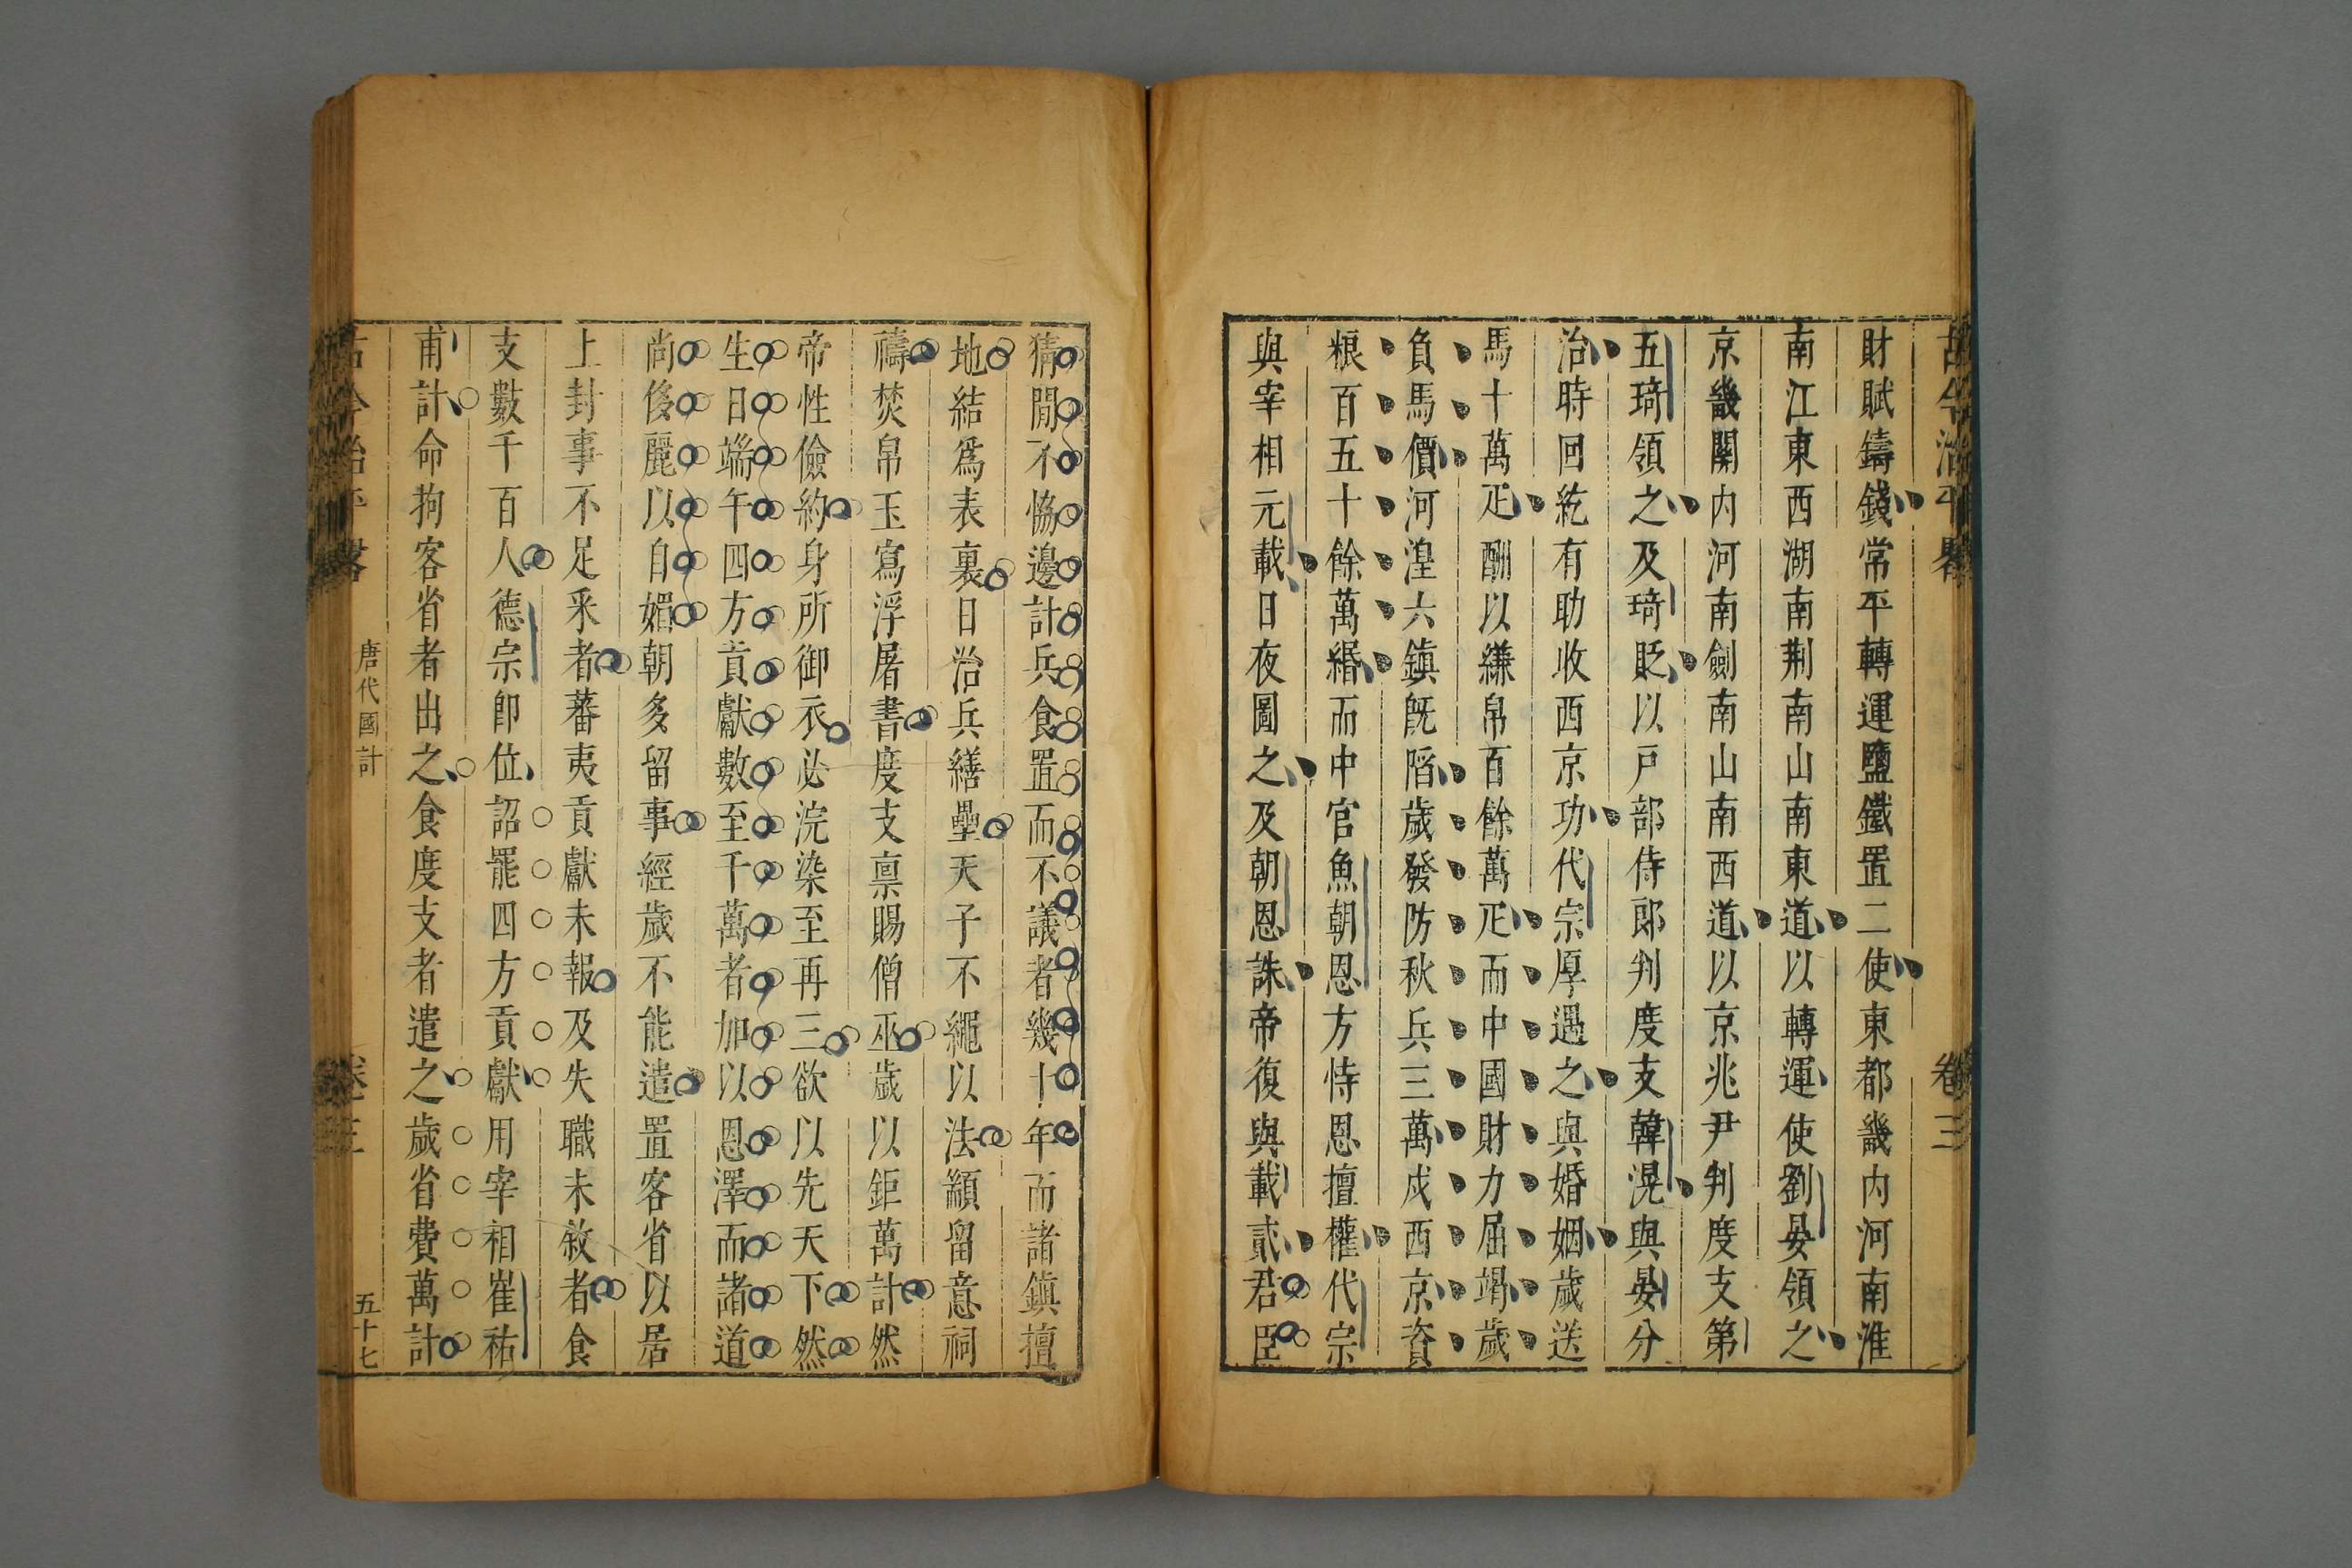 古今治平畧 卷三
財賦鑄錢常平轉運鹽鐵置二使東都畿内河南淮
南江東西湖南荆南山南東道以轉運使劉晏領之
京畿關内河南劍南山南西道以京兆尹判度支第
五琦領之及琦貶以戸部侍郎判度支韓滉與晏分
治時回紇有助收西京功代宗厚遇之與婚姻歲送
馬十萬疋酬以縑帛百餘萬疋而中國財力屈竭歲
負馬價河湟六鎮旣陷歲發防秋兵三萬戍西京資
糧百五十餘萬緡而中官魚朝恩方恃恩擅權代宗
與宰相元載日夜圖之及朝恩誅帝復與載貳君臣
猜間不恊邊計兵食置而不議者幾十年而諸鎮擅
地結爲表裏日治兵繕壘天子不繩以法顓留意祠
禱焚帛玉寫浮屠書度支禀賜僧巫歲以鉅萬計然
帝性儉約身所御衣必浣染至再三欲以先天下然
生日端午四方貢獻數至千萬者加以恩澤而諸道
尚侈麗以自媚朝多留事經歲不能遣置客省以居
上封事不足采者蕃夷貢獻未報及失職未敘者食
支數千百人德宗卽位詔罷四方貢獻用宰相崔祐
甫計命拘客省者出之食度支者遣之歲省費萬計
古今治平畧 唐代國計 卷三 五十七